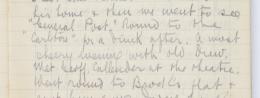 his home & then we went to see
"General Post." Round to the
Carlton for a drink after. A most
cheery evening with old Drew.
Met Geoff. Callender at the theatre.
Went round to Bond's flat &